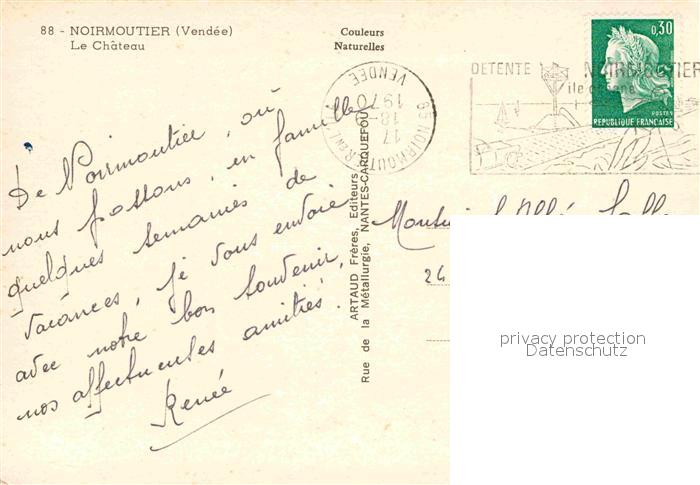 88 - NOIRMOUTIER (Vendée)
Le Château
Couleurs
Naturelles
0,30
POSTES
REPUBLIQUE FRANÇAISE
DETENTE NOIRMOUTIER
île océane
85 NOIRMOUTIER
17
18-
1970
VENDÉE
De Noirmoutier, où
nous passons, en famille
quelques semaines de
vacances, je vous envoie
avec notre bon souvenir,
nos affectueuses amitiés.
Renée
ARTAUD Frères, Editeurs
Rue de la Métallurgie, NANTES-CARQUEFOU
Monsieur l'Abbé
24
privacy protection
Datenschutz